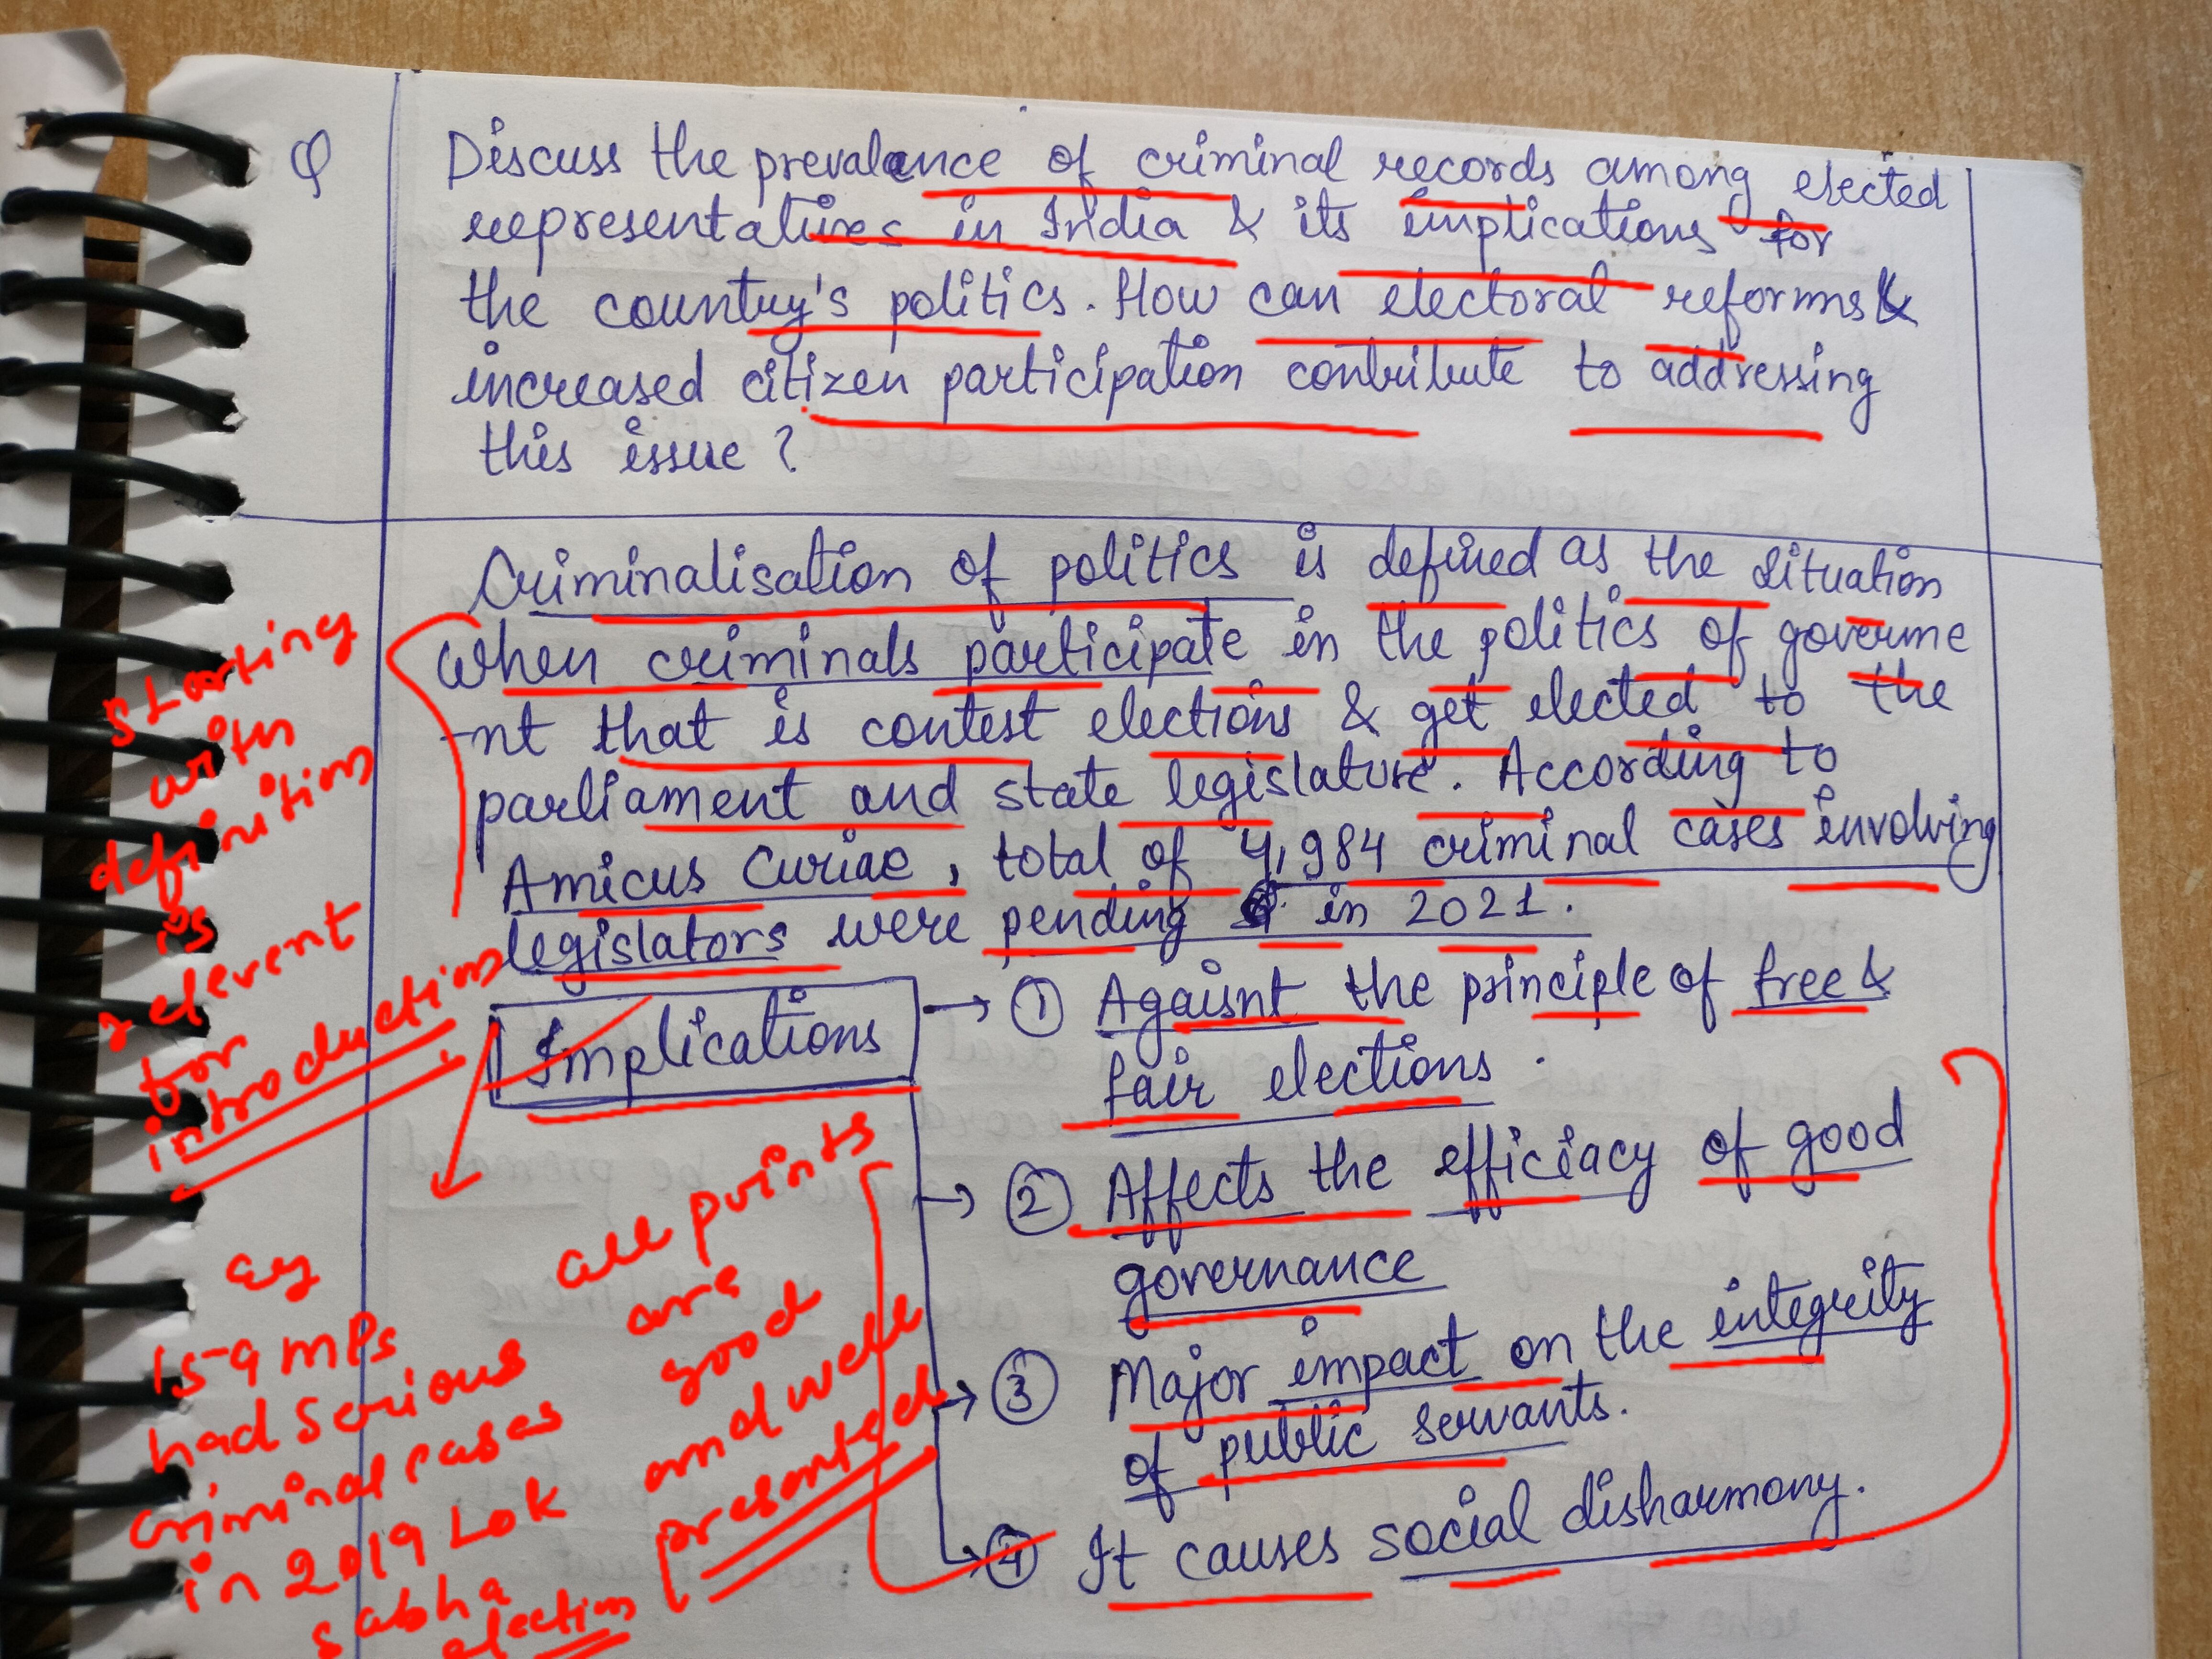 Q
Discuss the prevalance of criminal records among elected
representatives in India & its implications for
the country's politics. How can electoral reforms &
increased citizen participation contribute to addressing
this issue?
Criminalisation of politics is defined as the situation
when criminals participate in the politics of governme
-nt that is contest elections & get elected to the
parliament and state legislature. According to
Amicus Curiae, total of 4,984 criminal cases involving
legislators were pending in 2021.
Implications
① Agaisnt the principle of free &
fair elections.
② Affects the efficiacy of good
governance
③ Major impact on the integrity
of public servants.
④ It causes social disharmony.
starting
with
definition
is
relevent
for
introduction
eg
15-9 MPs
had serious
criminal cases
in 2019 Lok
sabha
election
all points
are
good
and well
presented